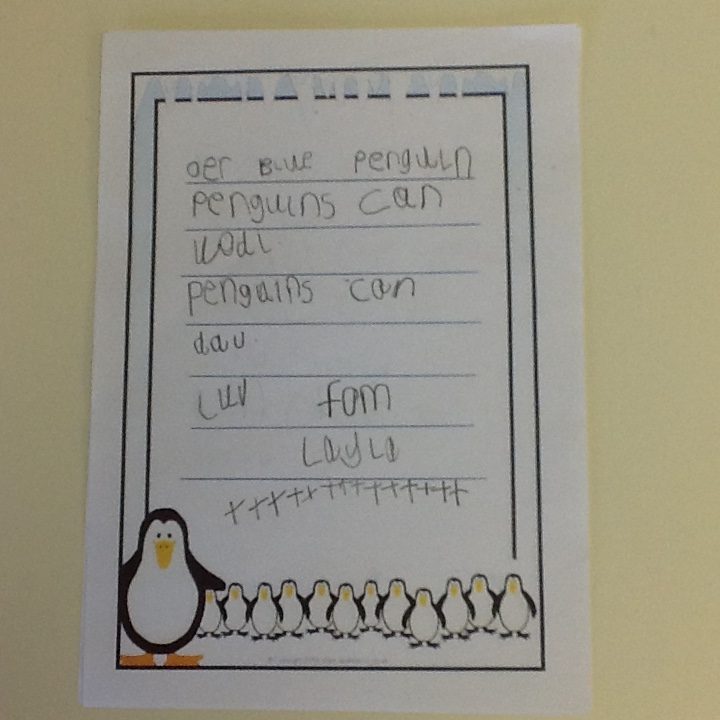 Der Blue Penguin
Penguins can
wodl
penguins can
dav
Luv fom
Layla
+++++++++++++++